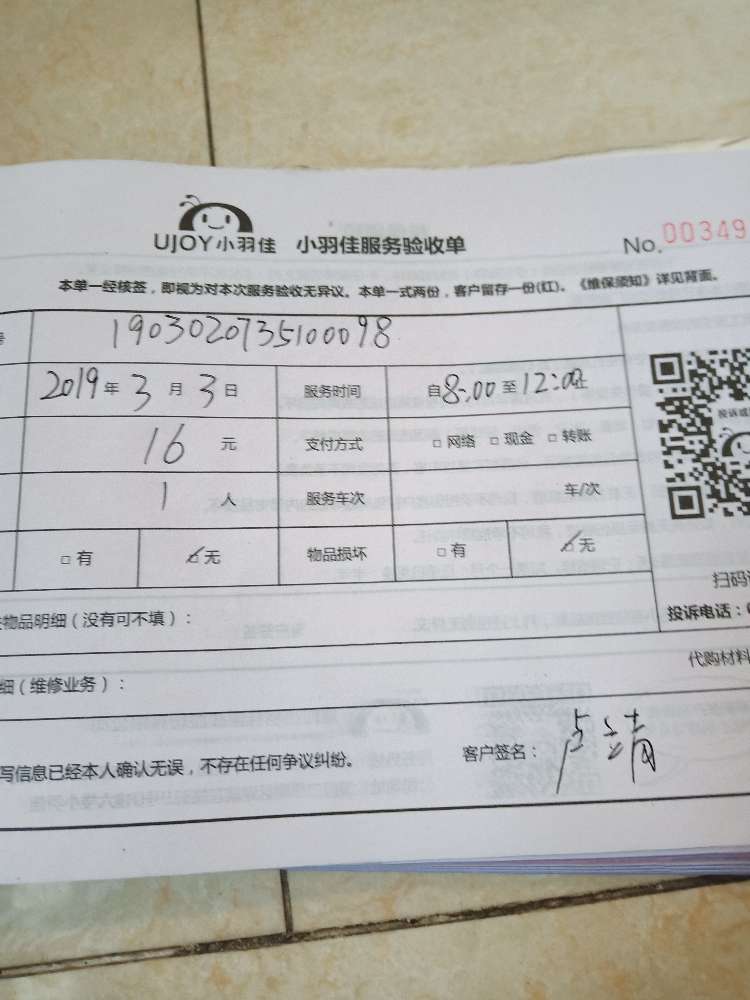 UJOY小羽佳 小羽佳服务验收单 No. 00349
本单一经核签，即视为对本次服务验收无异议。本单一式两份，客户留存一份(红)。《维保须知》详见背面。
号 190302073510098
2019年3月3日 服务时间 自8:00至12:00止
16元 支付方式 □网络 □现金 □转账
投诉或
1人 服务车次 车/次
□有 ☑无 物品损坏 □有 ☑无
扫码
物品明细（没有可不填）： 投诉电话：
细（维修业务）： 代购材料
写信息已经本人确认无误，不存在任何争议纠纷。 客户签名：